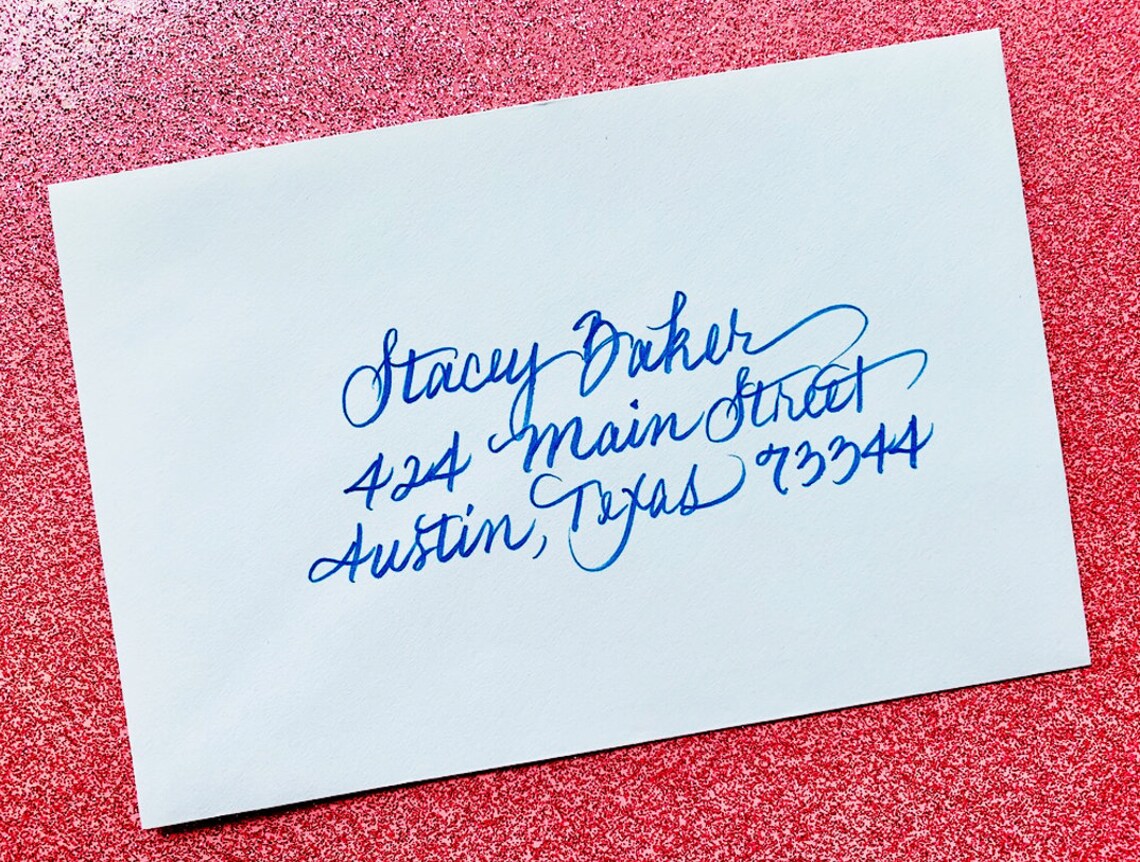 Stacey Baker
424 Main Street
Austin, Texas 73344